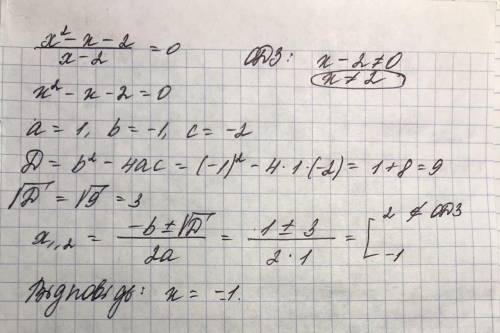 (x² - x - 2)/(x - 2) = 0    ОДЗ: x - 2 ≠ 0
x ≠ 2
x² - x - 2 = 0
a = 1, b = -1, c = -2
D = b² - 4ac = (-1)² - 4·1·(-2) = 1+8 = 9
√D = √9 = 3
x₁,₂ = (-b ± √D)/(2a) = (1 ± 3)/(2·1) = [ 2 ∉ ОДЗ
-1
Відповідь: x = -1.